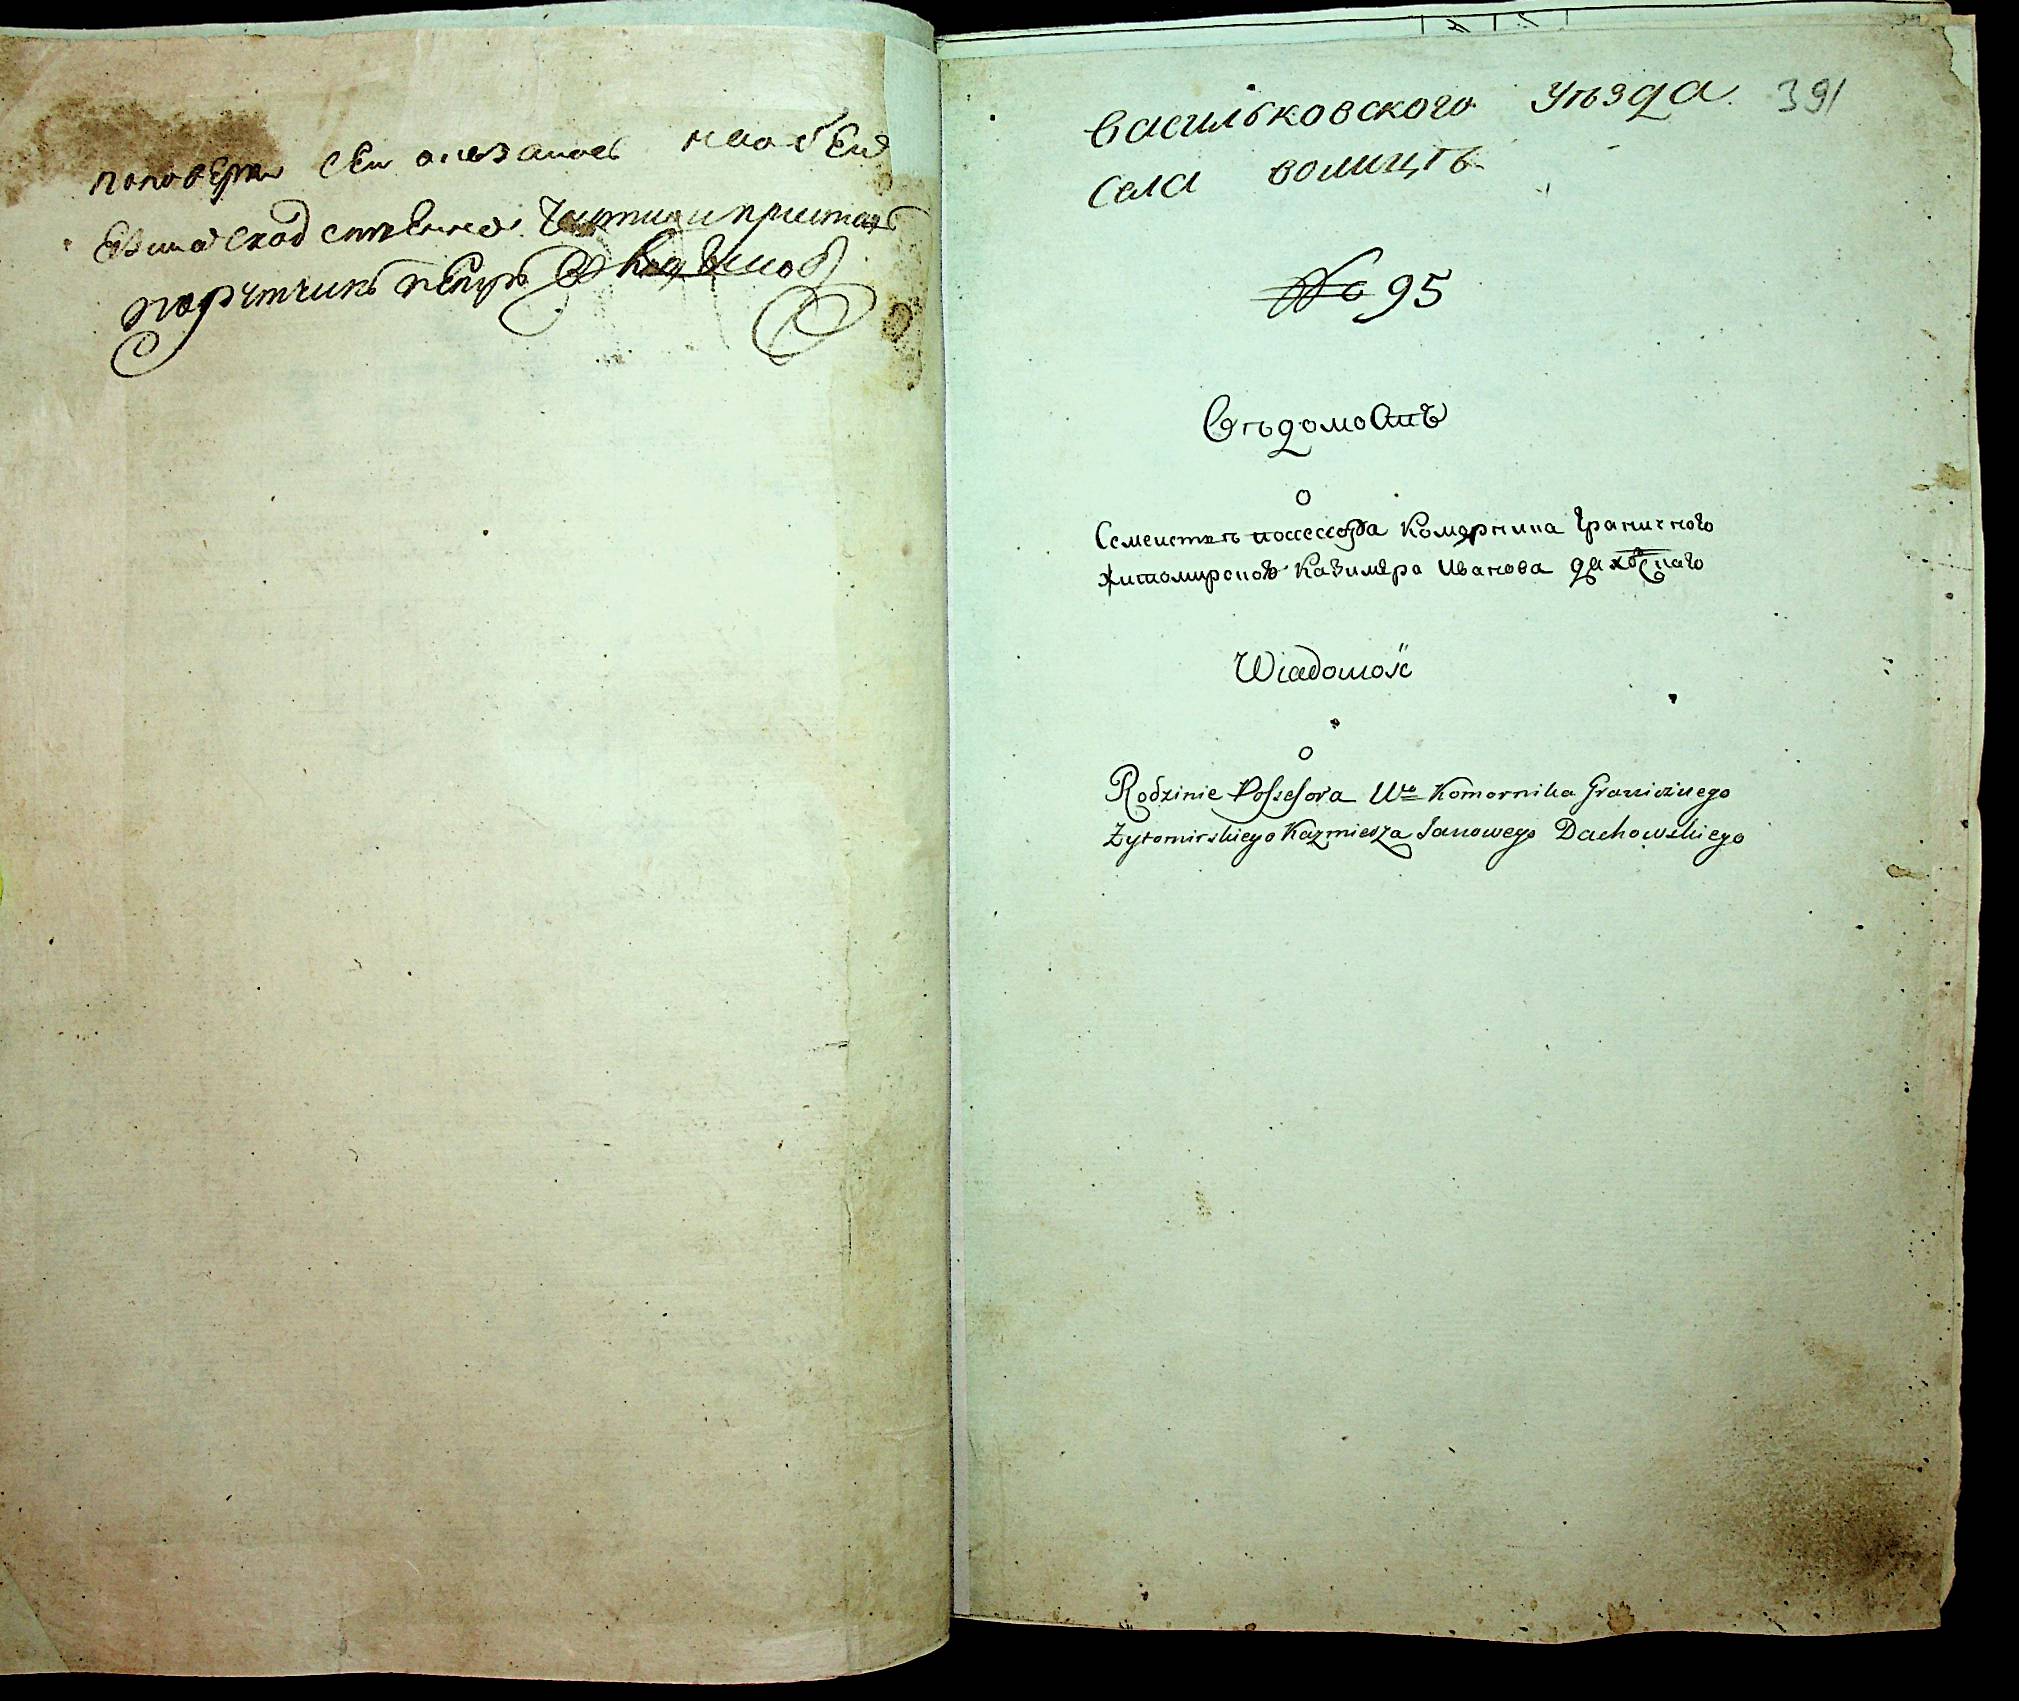 поповерки сеи оказалось
сходственно части и приставъ
порутчикъ петръ
Васильковского уѣзда 391
Села волицѣ
№ 95
Вѣдомость
о
Семеистве поссессора Коморника Граничного
житомирского Казимера Иванова даховскаго
Wiadomość
o
Rodzinie Possesora Wo Komornika Granicznego
Żytomirskiego Kazmierza Janowego Dachowskiego